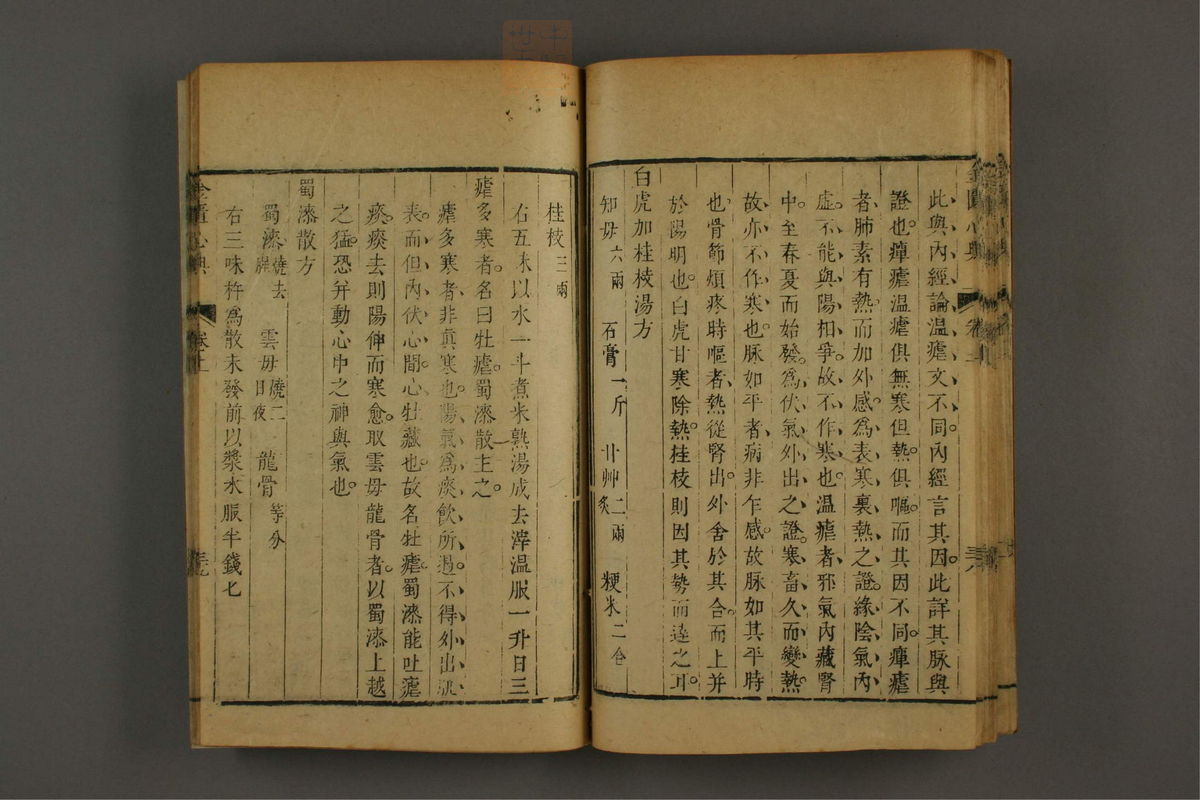 此與內經論温瘧文不同。內經言其因。此詳其脉與
證也。癉瘧温瘧俱無寒但熱。俱嘔。而其因不同。癉瘧
者肺素有熱。而加外感。爲表寒裏熱之證。緣陰氣內
虛。不能與陽相爭。故不作寒也。温瘧者。邪氣內藏腎
中。至春夏而始發。爲伏氣外出之證。寒畜久而變熱。
故亦不作寒也。脉如平者。病非乍感。故脉如其平時
也。骨節煩疼時嘔者。熱從腎出。外舍於其合。而上并
於陽明也。白虎甘寒除熱。桂枝則因其勢而達之耳。
白虎加桂枝湯方
知母六兩 石膏一斤 甘艸二兩炙 粳米二合
桂枝三兩
右五味以水一斗煮米熟湯成去滓温服一升日三
瘧多寒者。名曰牡瘧。蜀漆散主之。
瘧多寒者。非真寒也。陽氣爲痰飲所遏。不得外出肌
表。而但內伏心間。心牡藏也。故名牡瘧。蜀漆能吐瘧
痰。痰去則陽伸而寒愈。取雲母龍骨者。以蜀漆上越
之猛。恐并動心中之神與氣也。
蜀漆散方
蜀漆燒去腥 雲母燒二日夜 龍骨等分
右三味杵爲散未發前以漿水服半錢匕
金匱心典 卷上